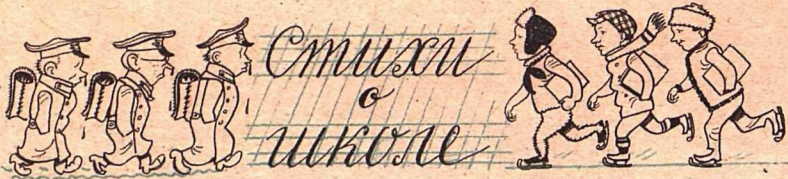 Стихи
о
школе